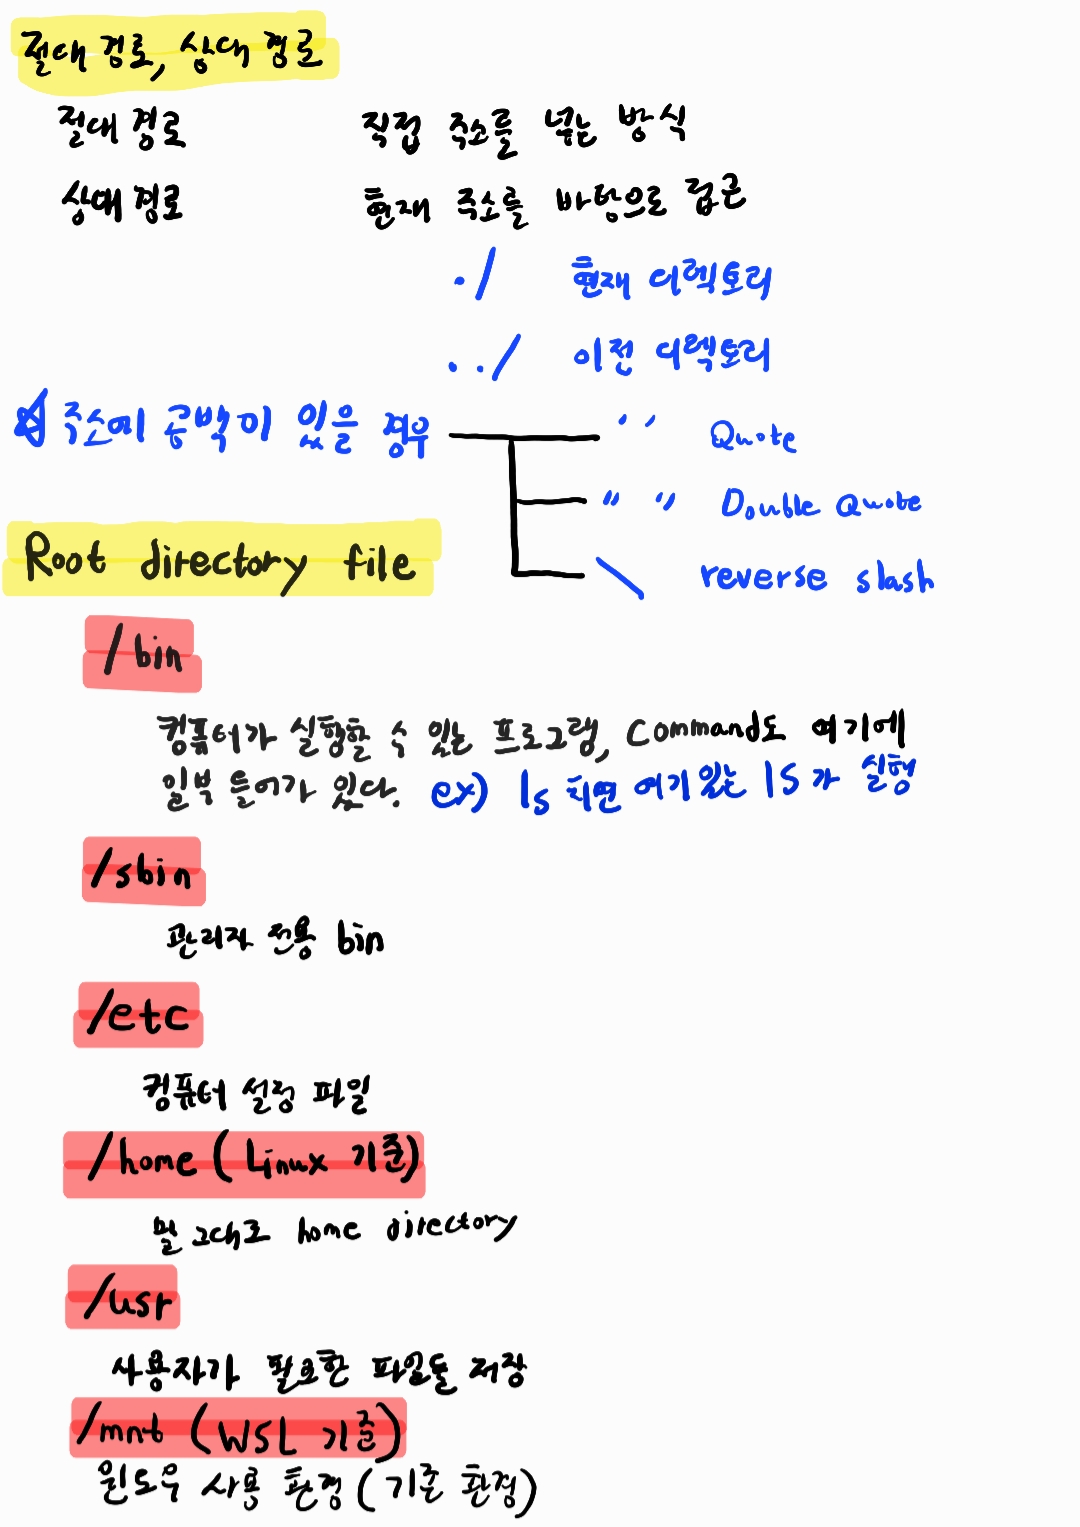 절대 경로, 상대 경로
절대 경로 직접 주소를 넣는 방식
상대 경로 현재 주소를 바탕으로 접근
./ 현재 디렉토리
../ 이전 디렉토리
주소에 공백이 있을 경우 ' ' Quote
" " Double Quote
\ reverse slash
Root directory file
/bin
컴퓨터가 실행할 수 있는 프로그램, Command도 여기에
일부 들어가 있다. ex) ls 치면 여기 있는 ls가 실행
/sbin
관리자 전용 bin
/etc
컴퓨터 설정 파일
/home (Linux 기준)
말 그대로 home directory
/usr
사용자가 필요한 파일들 저장
/mnt (WSL 기준)
윈도우 사용 환경 (기존 환경)